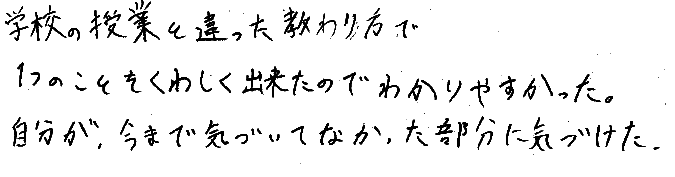 学校の授業と違った教わり方で
1つのことをくわしく出来たのでわかりやすかった。
自分が、今まで気づいてなかった部分に気づけた。